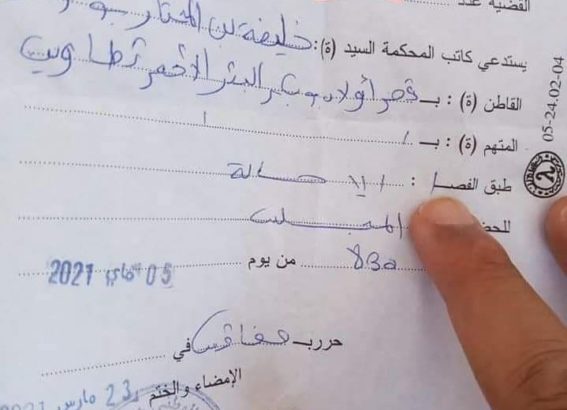 القضية عدد
يستدعي كاتب المحكمة السيد (ة): خليفة بن المختار
القاطن (ة) : بـ قصر أولاد دباب البئر الأحمر تطاوين
المتهم (ة) : بـ /
طبق الفصل : الإحالة
للحضور
830 من يوم 05 ماي 2021
حرر بـ صفاقس في
الإمضاء والختم 23 مارس 2021
05-24.02-04